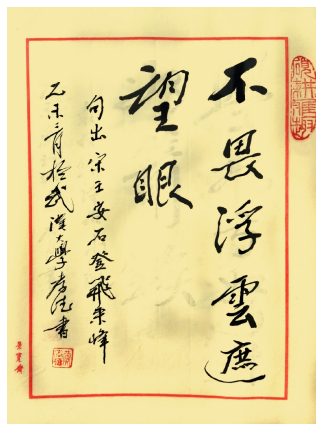 不畏浮雲遮
望眼
句出宋王安石登飛来峰
乙未 於武漢大學 書
榮寶齋